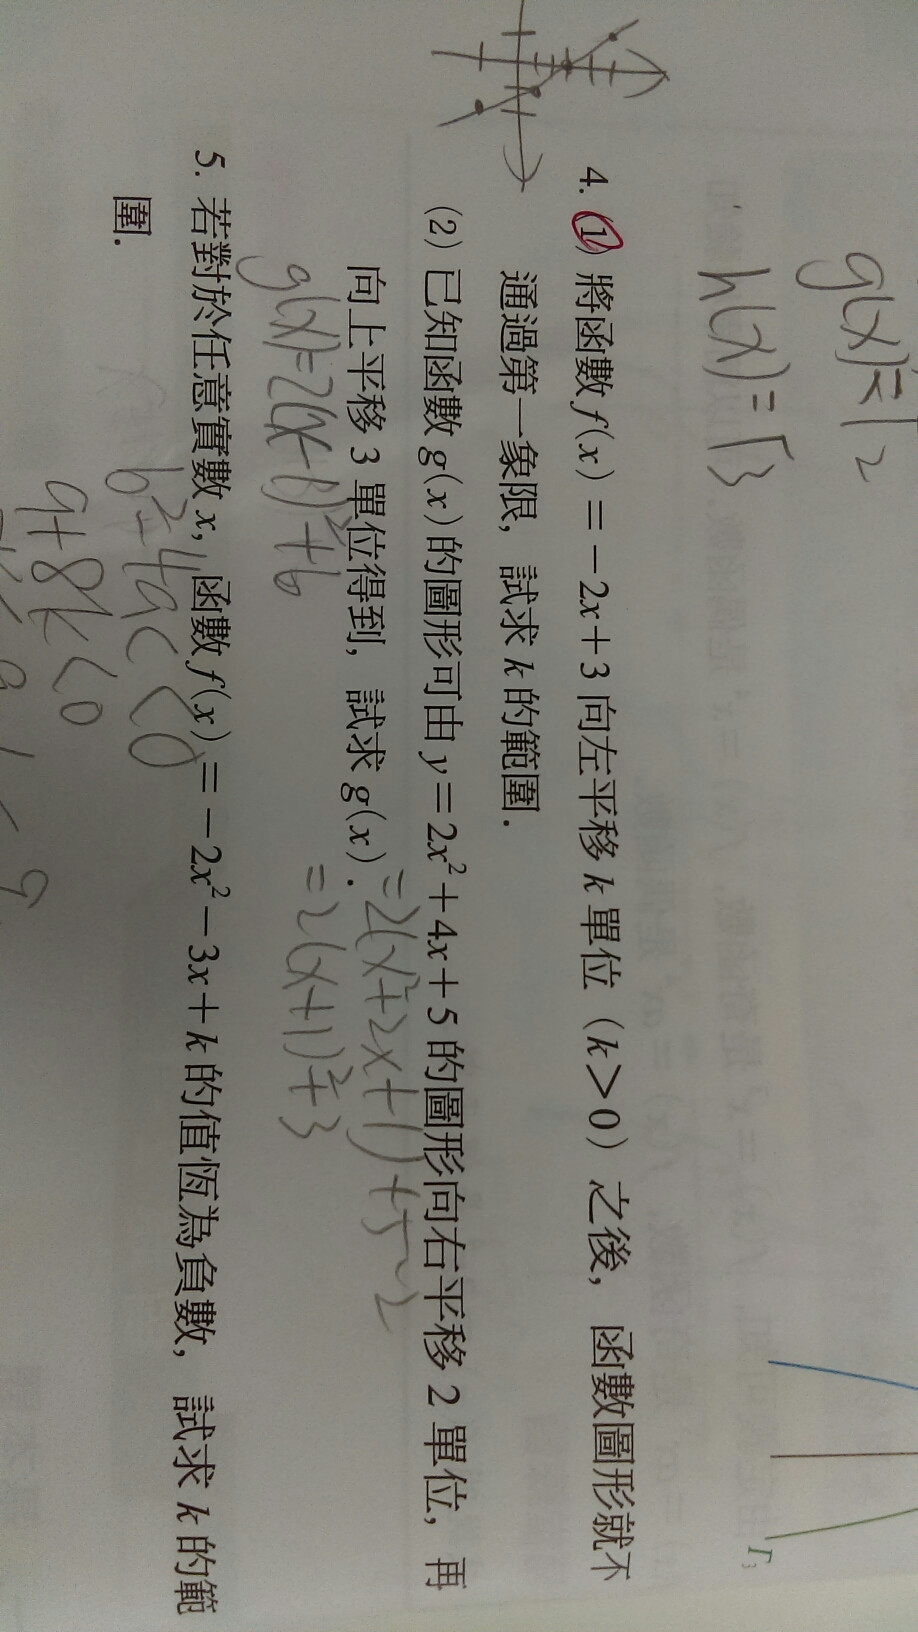 g(x)=Γ2
h(x)=Γ3
Γ3
4. (1) 將函數 f(x)=-2x+3 向左平移 k 單位 (k>0) 之後, 函數圖形就不
通過第一象限, 試求 k 的範圍.
(2) 已知函數 g(x) 的圖形可由 y=2x²+4x+5 的圖形向右平移 2 單位, 再
=2(x²+2x+1)+5-2
向上平移 3 單位得到, 試求 g(x).
=2(x+1)²+3
g(x)=2(x-1)²+6
5. 若對於任意實數 x, 函數 f(x)=-2x²-3x+k 的值恆為負數, 試求 k 的範
圍.
b²-4ac<0
9+8k<0